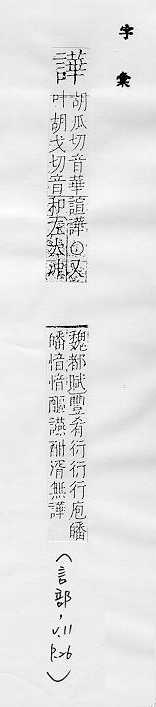 字彙
譁
胡瓜切音華諠譁○又
叶胡戈切音和左太冲
魏都賦豐肴衍衍行庖皤
皤愔愔醧讌酣湑無譁
(言部,v.11
p.26)